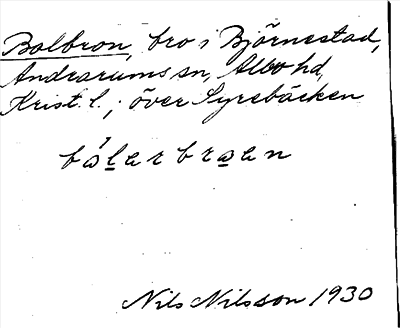 Bolbron, bro i Björnestad,
Andrarums sn, Albo hd,
Krist. l.; över Syrebäcken
bo̱lerbro̱en
Nils Nilsson 1930